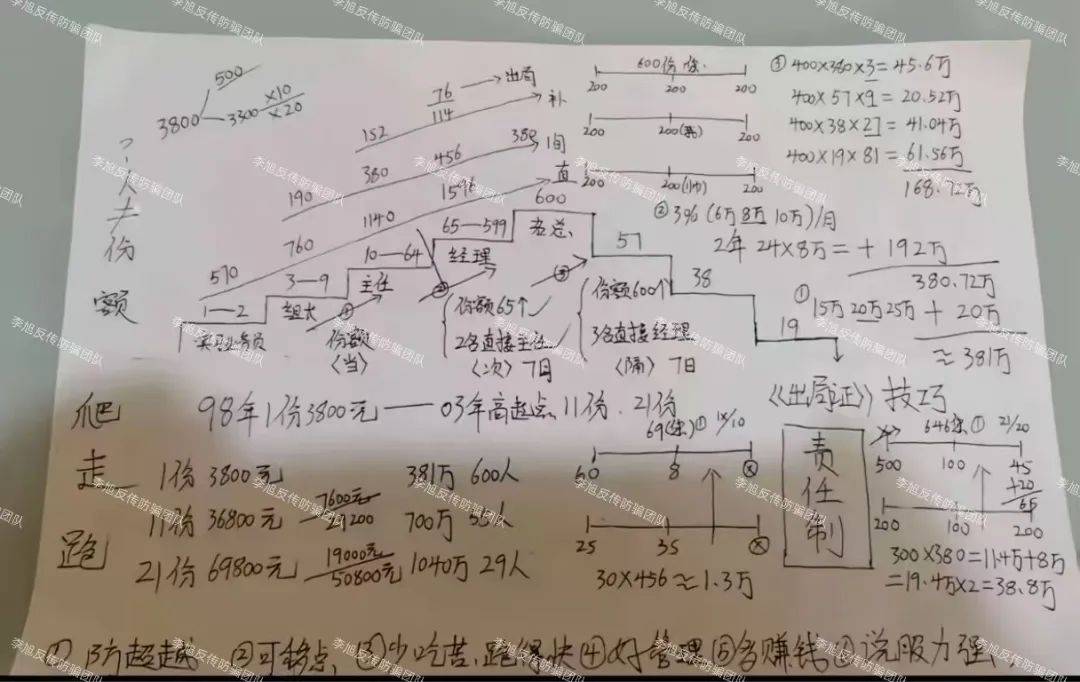 500
3800
3300 ×10
×20
人
份
额
76 → 出局
114
补
152
388 间
456
380
190
直
1596
1140
760
570
600份
200 200 200
200 200 200
200 200 200
③ 400×380×3=45.6万
400×57×9=20.52万
400×38×27=41.04万
400×19×81=61.56万
168.72万
② 3% (6万 8万 10万)/月
2年 24×8万=+192万
380.72万
① 15万 20万 25万 + 20万
≈381万
1—2
实习业务员
3—9
组长
10—64
主任
65—599
经理
600
老总
57
38
19
份额
〈当〉
份额65↑
2名直接主任
〈次〉7日
份额600↑
3名直接经理
〈隔〉7日
爬 98年1份3800元——03年高起点 11份、21份
走 1份 3800元 381万 600人
11份 36800元 7600元 700万
21200
跑 21份 69800元 19000元 1040万 29人
50800元
《出局证》技巧
① 1x/10
60 8 ⊗
25 35 ⊗
30×456≈1.3万
责
任
制
① 21/20
500 100 45
+20
65
200 100 200
300×380=11.4万+8万
=19.4万×2=38.8万
① 防超越 ②可移点 ③少吃苦、跑得快 ④好管理 ⑤多赚钱 ⑥说服力强
李旭反传防骗团队